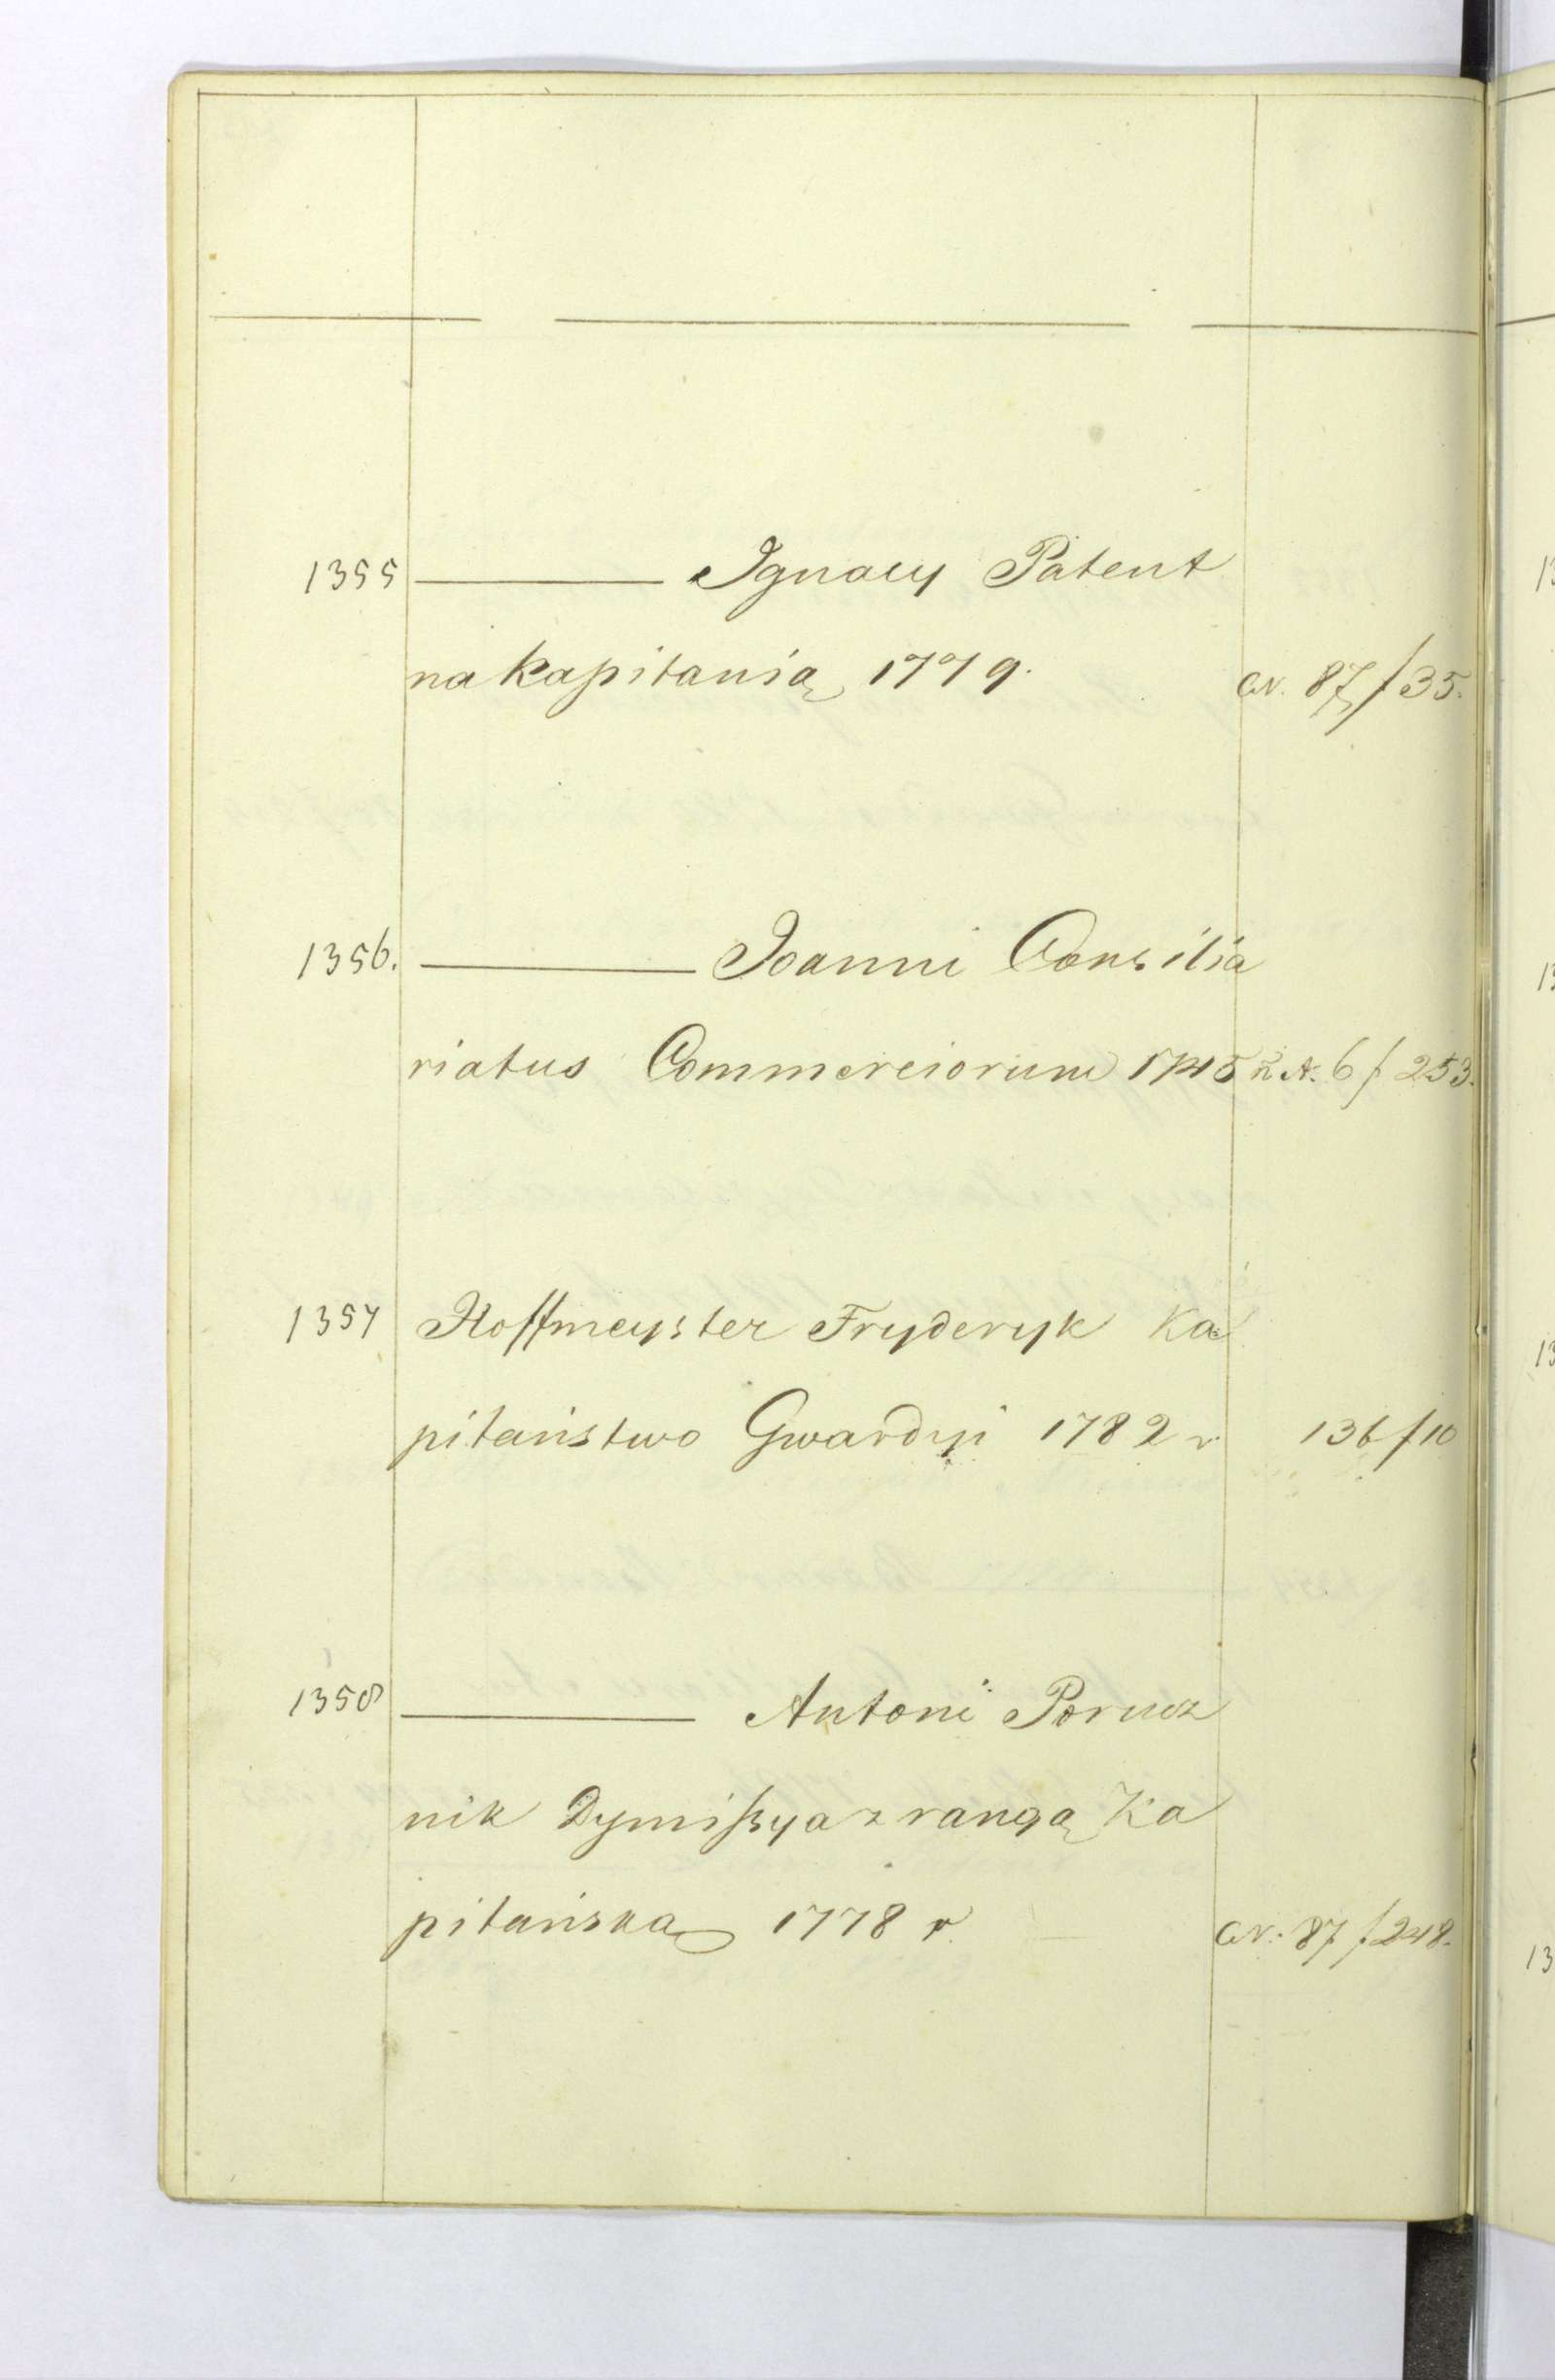 1355 ——— Ignacy Patent
na Kapitanią 1779. CN. 87/35.
1356. ——— Joanni Consilia
riatus Commerciorum 1745 r. A. 6/253.
1357 Hoffmeyster Fryderyk Ka
pitaństwo Gwardyi 1782 r 136/10
1358 ——— Antoni Porucz
nik Dymissya z rangą Ka
pitańską 1778 r. CN: 87/248.